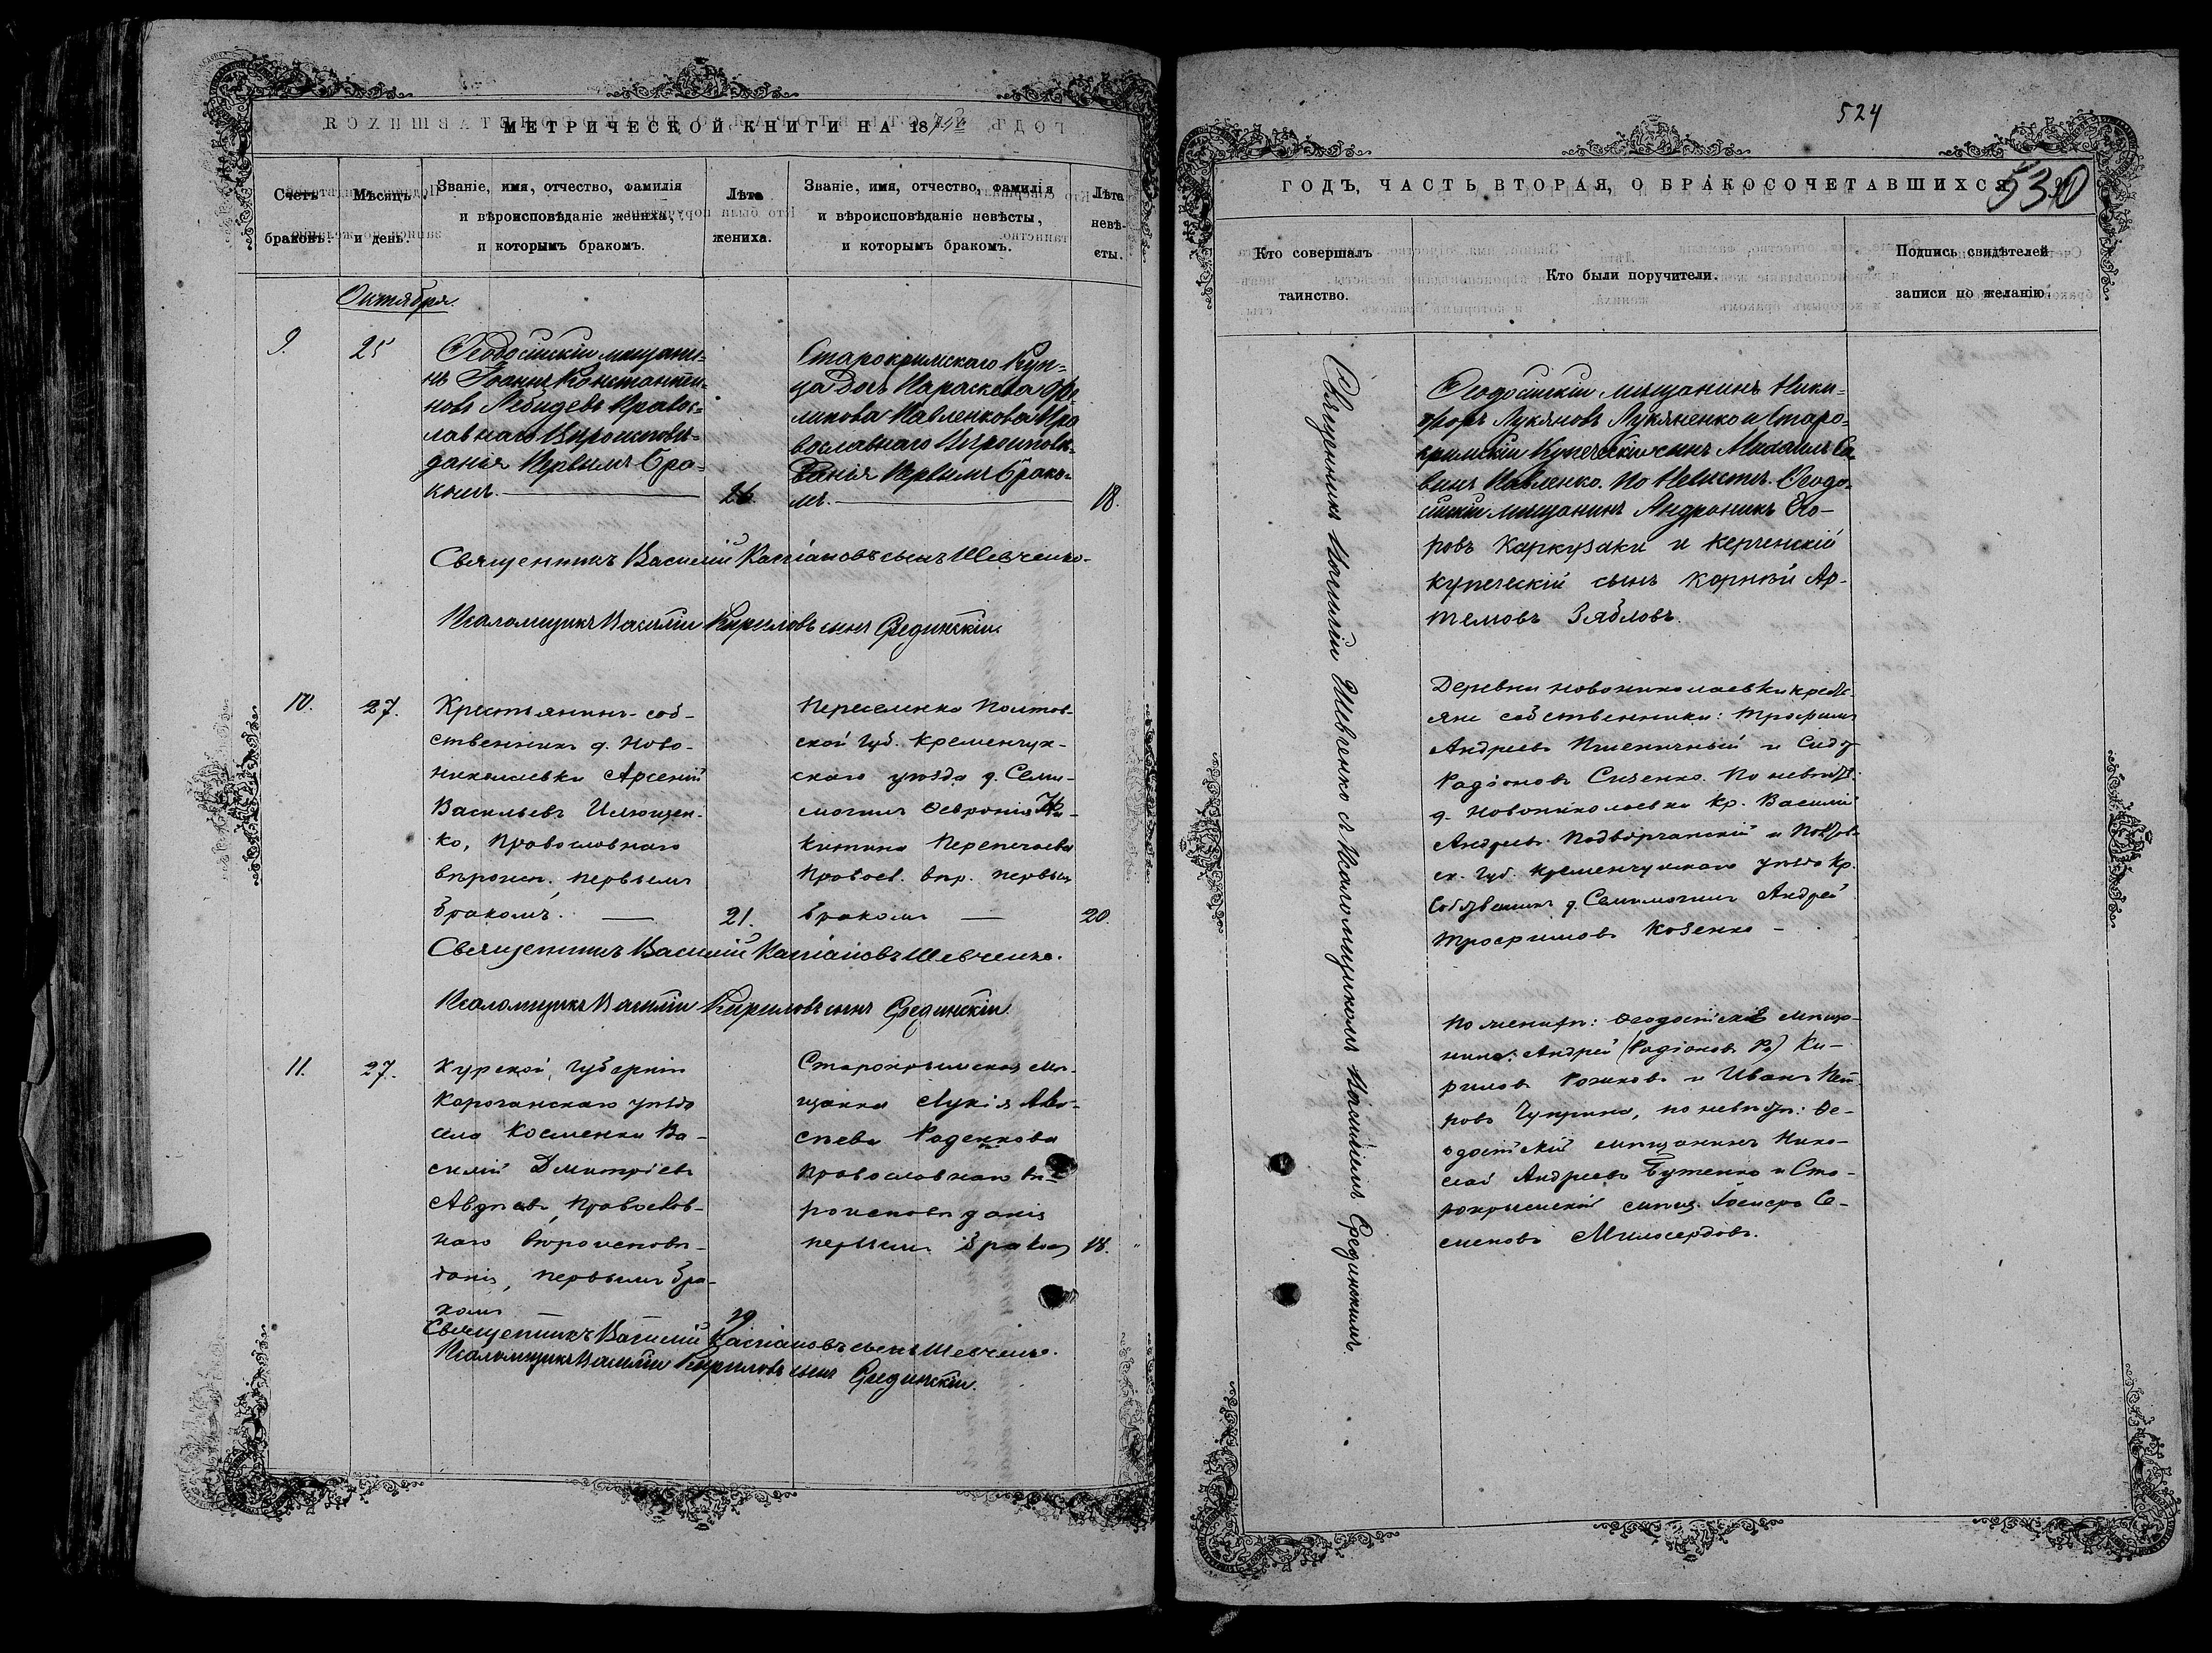 МЕТРИЧЕСКОЙ КНИГИ НА 18
Счетъ браковъ.
Мѣсяцъ и день.
Званіе, имя, отчество, фамилія
и вѣроисповѣданіе жениха,
и которымъ бракомъ.
Лѣта
жениха.
Званіе, имя, отчество, фамилія
и вѣроисповѣданіе невѣсты,
и которымъ бракомъ.
Лѣта
невѣ-
сты.
Октября.
9.
25
Ѳеодосійскій мещани-
нъ Іоаннъ Константи-
новъ Лебедевъ Правос-
лавнаго Вѣроисповѣ-
данія Первымъ бра-
комъ.
26
Старокримскаго Куп-
ца Дочь Параскева
Павленкова Пра
вославнаго Вѣроисповѣ-
данія Первымъ брако-
мъ.
18.
Священникъ Василій Кассіановъ сынъ Шевченко.
Псаломщикъ Василій Кириловъ сынъ Срединскій.
10.
27.
Крестьянинъ-соб-
ственникъ д. Ново-
николаевки Арсеній
Васильевъ Ильющен-
ко, Православнаго
вѣроисп., первымъ
бракомъ.
21.
Переселенка Полтав-
ской Губ. Кременчуг-
скаго уѣзда д. Семи-
могилъ Ѳевронія Ни-
китина
Правосл. вѣр. первым
бракомъ
20.
Священникъ Василій Кассіановъ Шевченко.
Псаломщикъ Василій Кириловъ сынъ Срединскій.
11.
27.
Курской Губерніи
Корочанскаго уѣзда
села Ва-
силій Дмитріевъ
Авдѣевъ, Православ-
наго вѣроисповѣ-
данія, первымъ бра-
комъ
29
Старокрымская мѣ-
щанка Лукія
Раденкова
Православнаго вѣ-
роисповѣданія
первымъ браком
18.
Священникъ Василій Кассіановъ сынъ Шевченко.
Псаломщикъ Василій Кириловъ сынъ Срединскій.
524
530
ГОДЪ, ЧАСТЬ ВТОРАЯ, О БРАКОСОЧЕТАВШИХСЯ
Кто совершалъ
таинство.
Кто были поручители.
Подпись свидѣтелей
записи по желанію.
Священникъ Василій Шевченко съ Псаломщикомъ Василіемъ Срединскимъ.
Ѳеодосійскій мѣщанинъ Ники-
форъ Лукяновъ Лукяненко и Старо-
кримскій Купеческій сынъ Михаилъ Са
винъ Павленко. По Невѣстѣ. Ѳеодо-
сійскій мѣщанинъ Андроникъ Его-
ровъ Каркузаки и Керченскій
купеческій сынъ Корнѣй Ар-
темовъ Зябловъ.
Деревни Новониколаевки кресть
яне собственники: Трофимъ
Андреевъ Пшеничный и Сидор
Радіоновъ Сизенко. По невѣстѣ:
д. Новониколаевки Кр. Василій
Андреевъ и Полтав
ск. Губ. Кременчугскаго уѣзда Кр.
Собственникъ д. Семимогилъ Андрей
Трофимовъ Козенко
По женихѣ: Ѳеодосійскій мѣща-
нинъ: Андрей (Радіоновъ Ра) Ки-
риловъ Рожковъ и Иванъ Пет
ровъ Чуприна, по невѣстѣ: Ѳе-
одосійскій мѣщанинъ Нико-
лай Андреевъ Бутенко и Ста-
рокрымскій мѣщ. Іосифъ Се-
меновъ Милосердовъ.